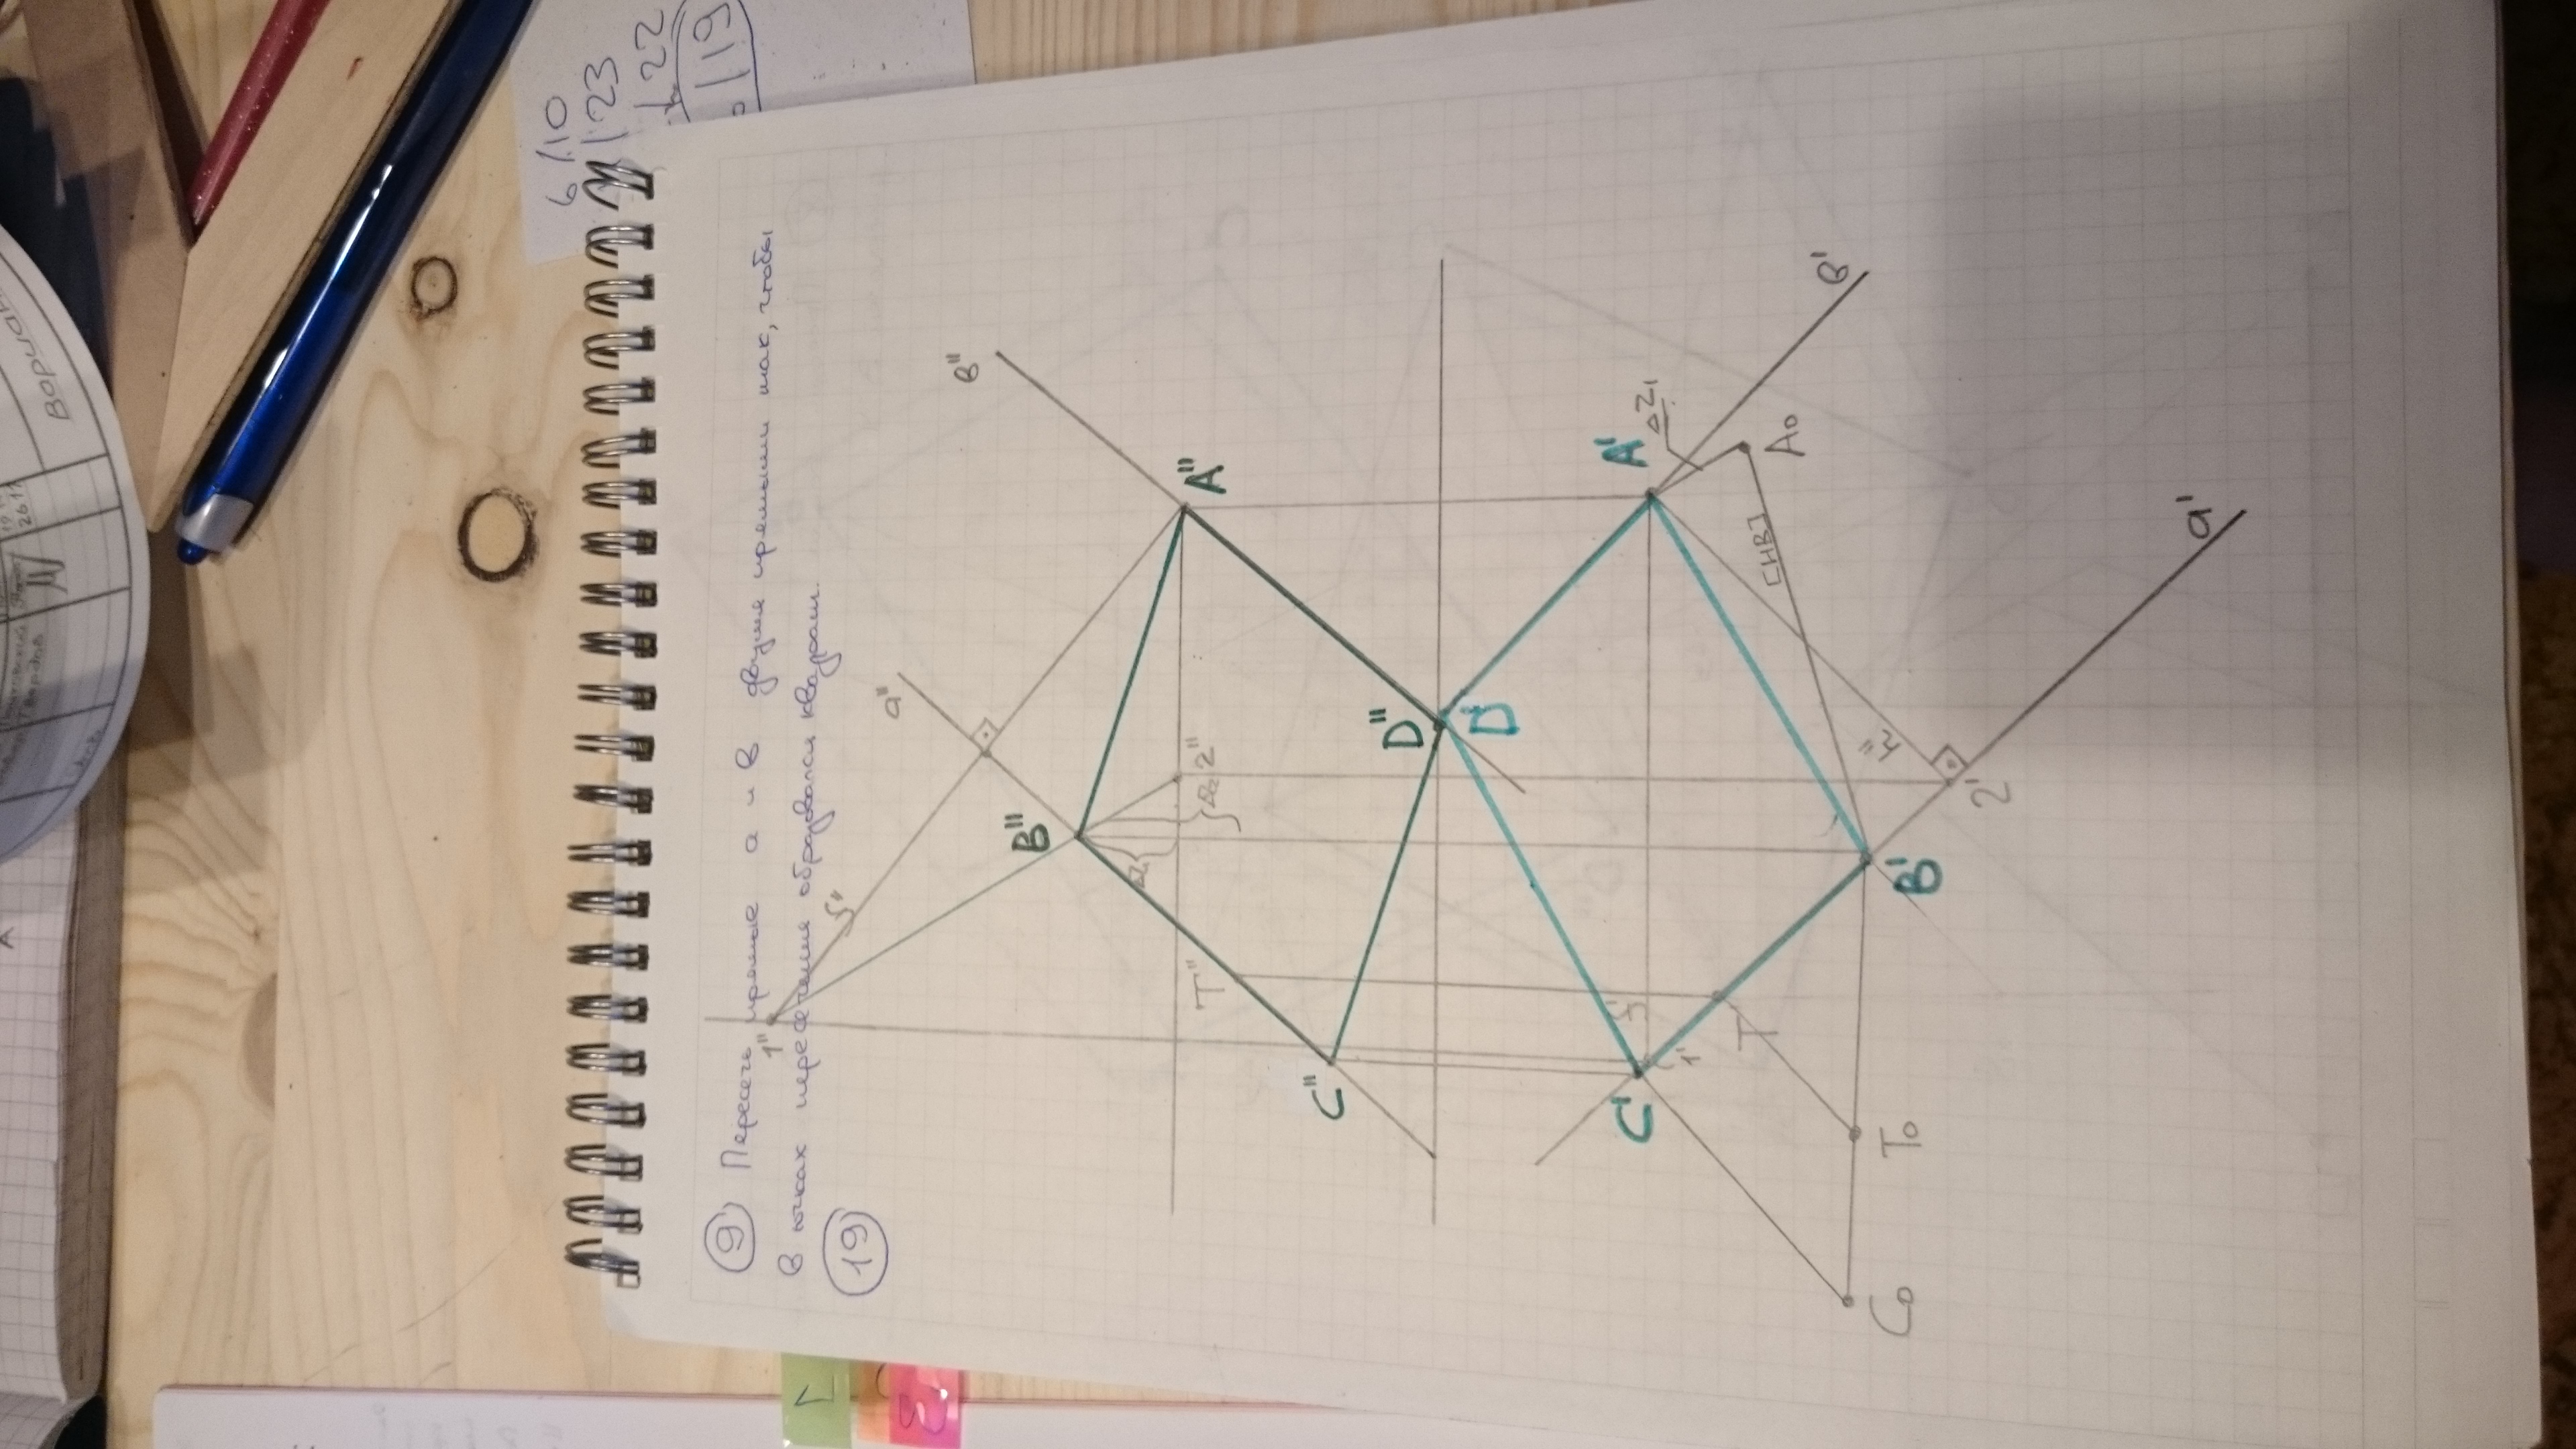 26.11
Вариан
6/10
/23
22
/19
⑨ Пересечь прямые a и b двумя прямыми так, чтобы
в точках пересечения образовался квадрат.
⑲
1"
f"
a"
b"
B"
2"
T"
A"
C"
D"
D'
C'
f'
A'
ΔZ₁
1'
T'
[HB]
A₀
b'
C₀
T₀
B'
h"
2'
a'